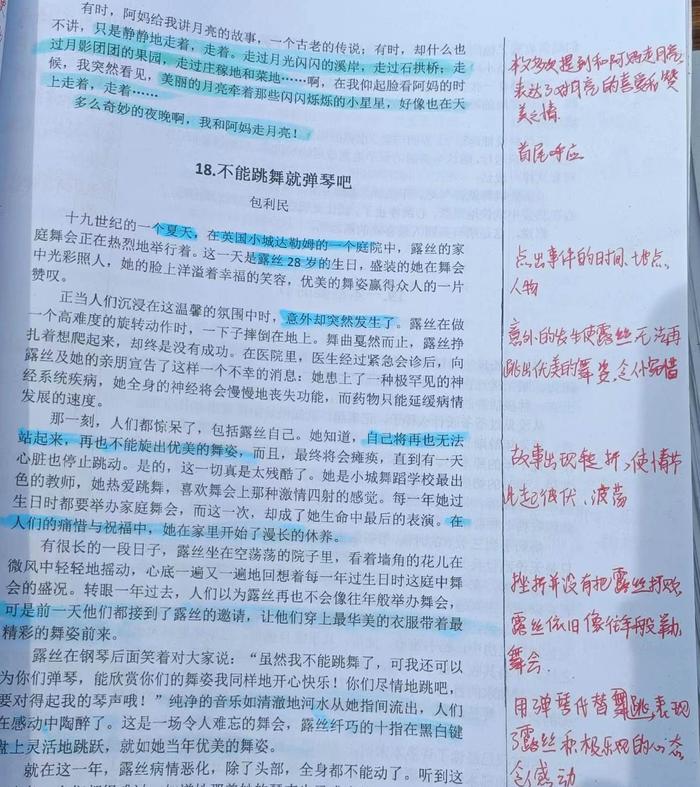 有时，阿妈给我讲月亮的故事，一个古老的传说；有时，却什么也
不讲，只是静静地走着，走着。走过月光闪闪的溪岸，走过石拱桥；走
过月影团团的果园，走过庄稼地和菜地……啊，在我仰起脸看阿妈的时
候，我突然看见，美丽的月亮牵着那些闪闪烁烁的小星星，好像也在天
上走着，走着……
多么奇妙的夜晚啊，我和阿妈走月亮！
本文多次提到和阿妈走月亮，
表达了对月亮的喜爱和赞
美之情
首尾呼应
18.不能跳舞就弹琴吧
包利民
十九世纪的一个夏天，在英国小城达勒姆的一个庭院中，露丝的家
庭舞会正在热烈地举行着。这一天是露丝 28 岁的生日，盛装的她在舞会
中光彩照人，她的脸上洋溢着幸福的笑容，优美的舞姿赢得众人的一片
赞叹。
点出事件的时间、地点、
人物
正当人们沉浸在这温馨的氛围中时，意外却突然发生了。露丝在做
一个高难度的旋转动作时，一下子摔倒在地上。舞曲戛然而止，露丝挣
扎着想爬起来，却终是没有成功。在医院里，医生经过紧急会诊后，向
露丝及她的亲朋宣告了这样一个不幸的消息：她患上了一种极罕见的神
经系统疾病，她全身的神经将会慢慢地丧失功能，而药物只能延缓病情
发展的速度。
意外的发生使露丝无法再
跳出优美的舞姿，令人惋惜
那一刻，人们都惊呆了，包括露丝自己。她知道，自己将再也无法
站起来，再也不能旋出优美的舞姿，而且，最终将会瘫痪，直到有一天
心脏也停止跳动。是的，这一切真是太残酷了。她是小城舞蹈学校最出
色的教师，她热爱跳舞，喜欢舞会上那种激情四射的感觉。每一年她过
生日时都要举办家庭舞会，而这一次，却成了她生命中最后的表演。在
人们的痛惜与祝福中，她在家里开始了漫长的休养。
故事出现转折，使情节
此起彼伏、波荡
有很长的一段日子，露丝坐在空荡荡的院子里，看着墙角的花儿在
微风中轻轻地摇动，心底一遍又一遍地回想着每一年过生日时这庭中舞
会的盛况。转眼一年过去，人们以为露丝再也不会像往年般举办舞会，
可是前一天他们都接到了露丝的邀请，让他们穿上最华美的衣服带着最
精彩的舞姿前来。
挫折并没有把露丝打败
露丝依旧像往年般举办
舞会.
露丝在钢琴后面笑着对大家说：“虽然我不能跳舞了，可我还可以
为你们弹琴，能欣赏你们的舞姿我同样地开心快乐！你们尽情地跳吧，
要对得起我的琴声哦！”纯净的音乐如清澈地河水从她指间流出，人们
在感动中陶醉了。这是一场令人难忘的舞会，露丝纤巧的十指在黑白键
盘上灵活地跳跃，就如她当年优美的舞姿。
用弹琴代替舞跳，表现
了露丝积极乐观的心态
令人感动
就在这一年，露丝病情恶化，除了头部，全身都不能动了。听到这